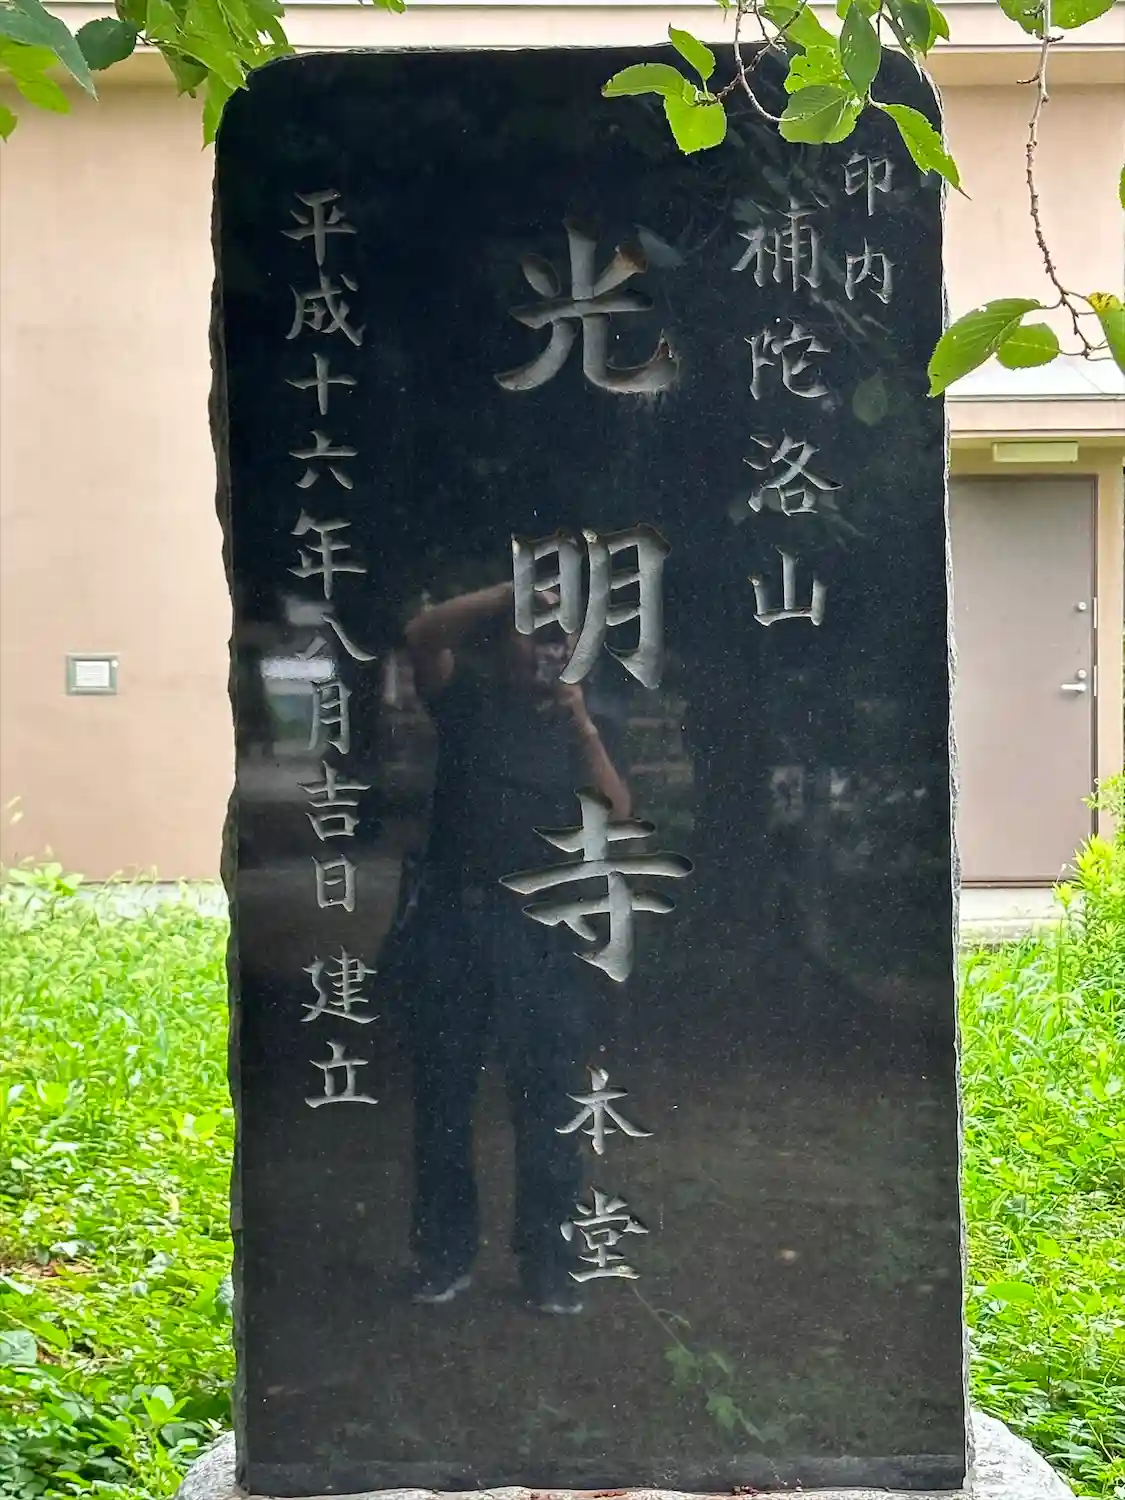 印内
補陀洛山
光明寺本堂
平成十六年八月吉日 建立